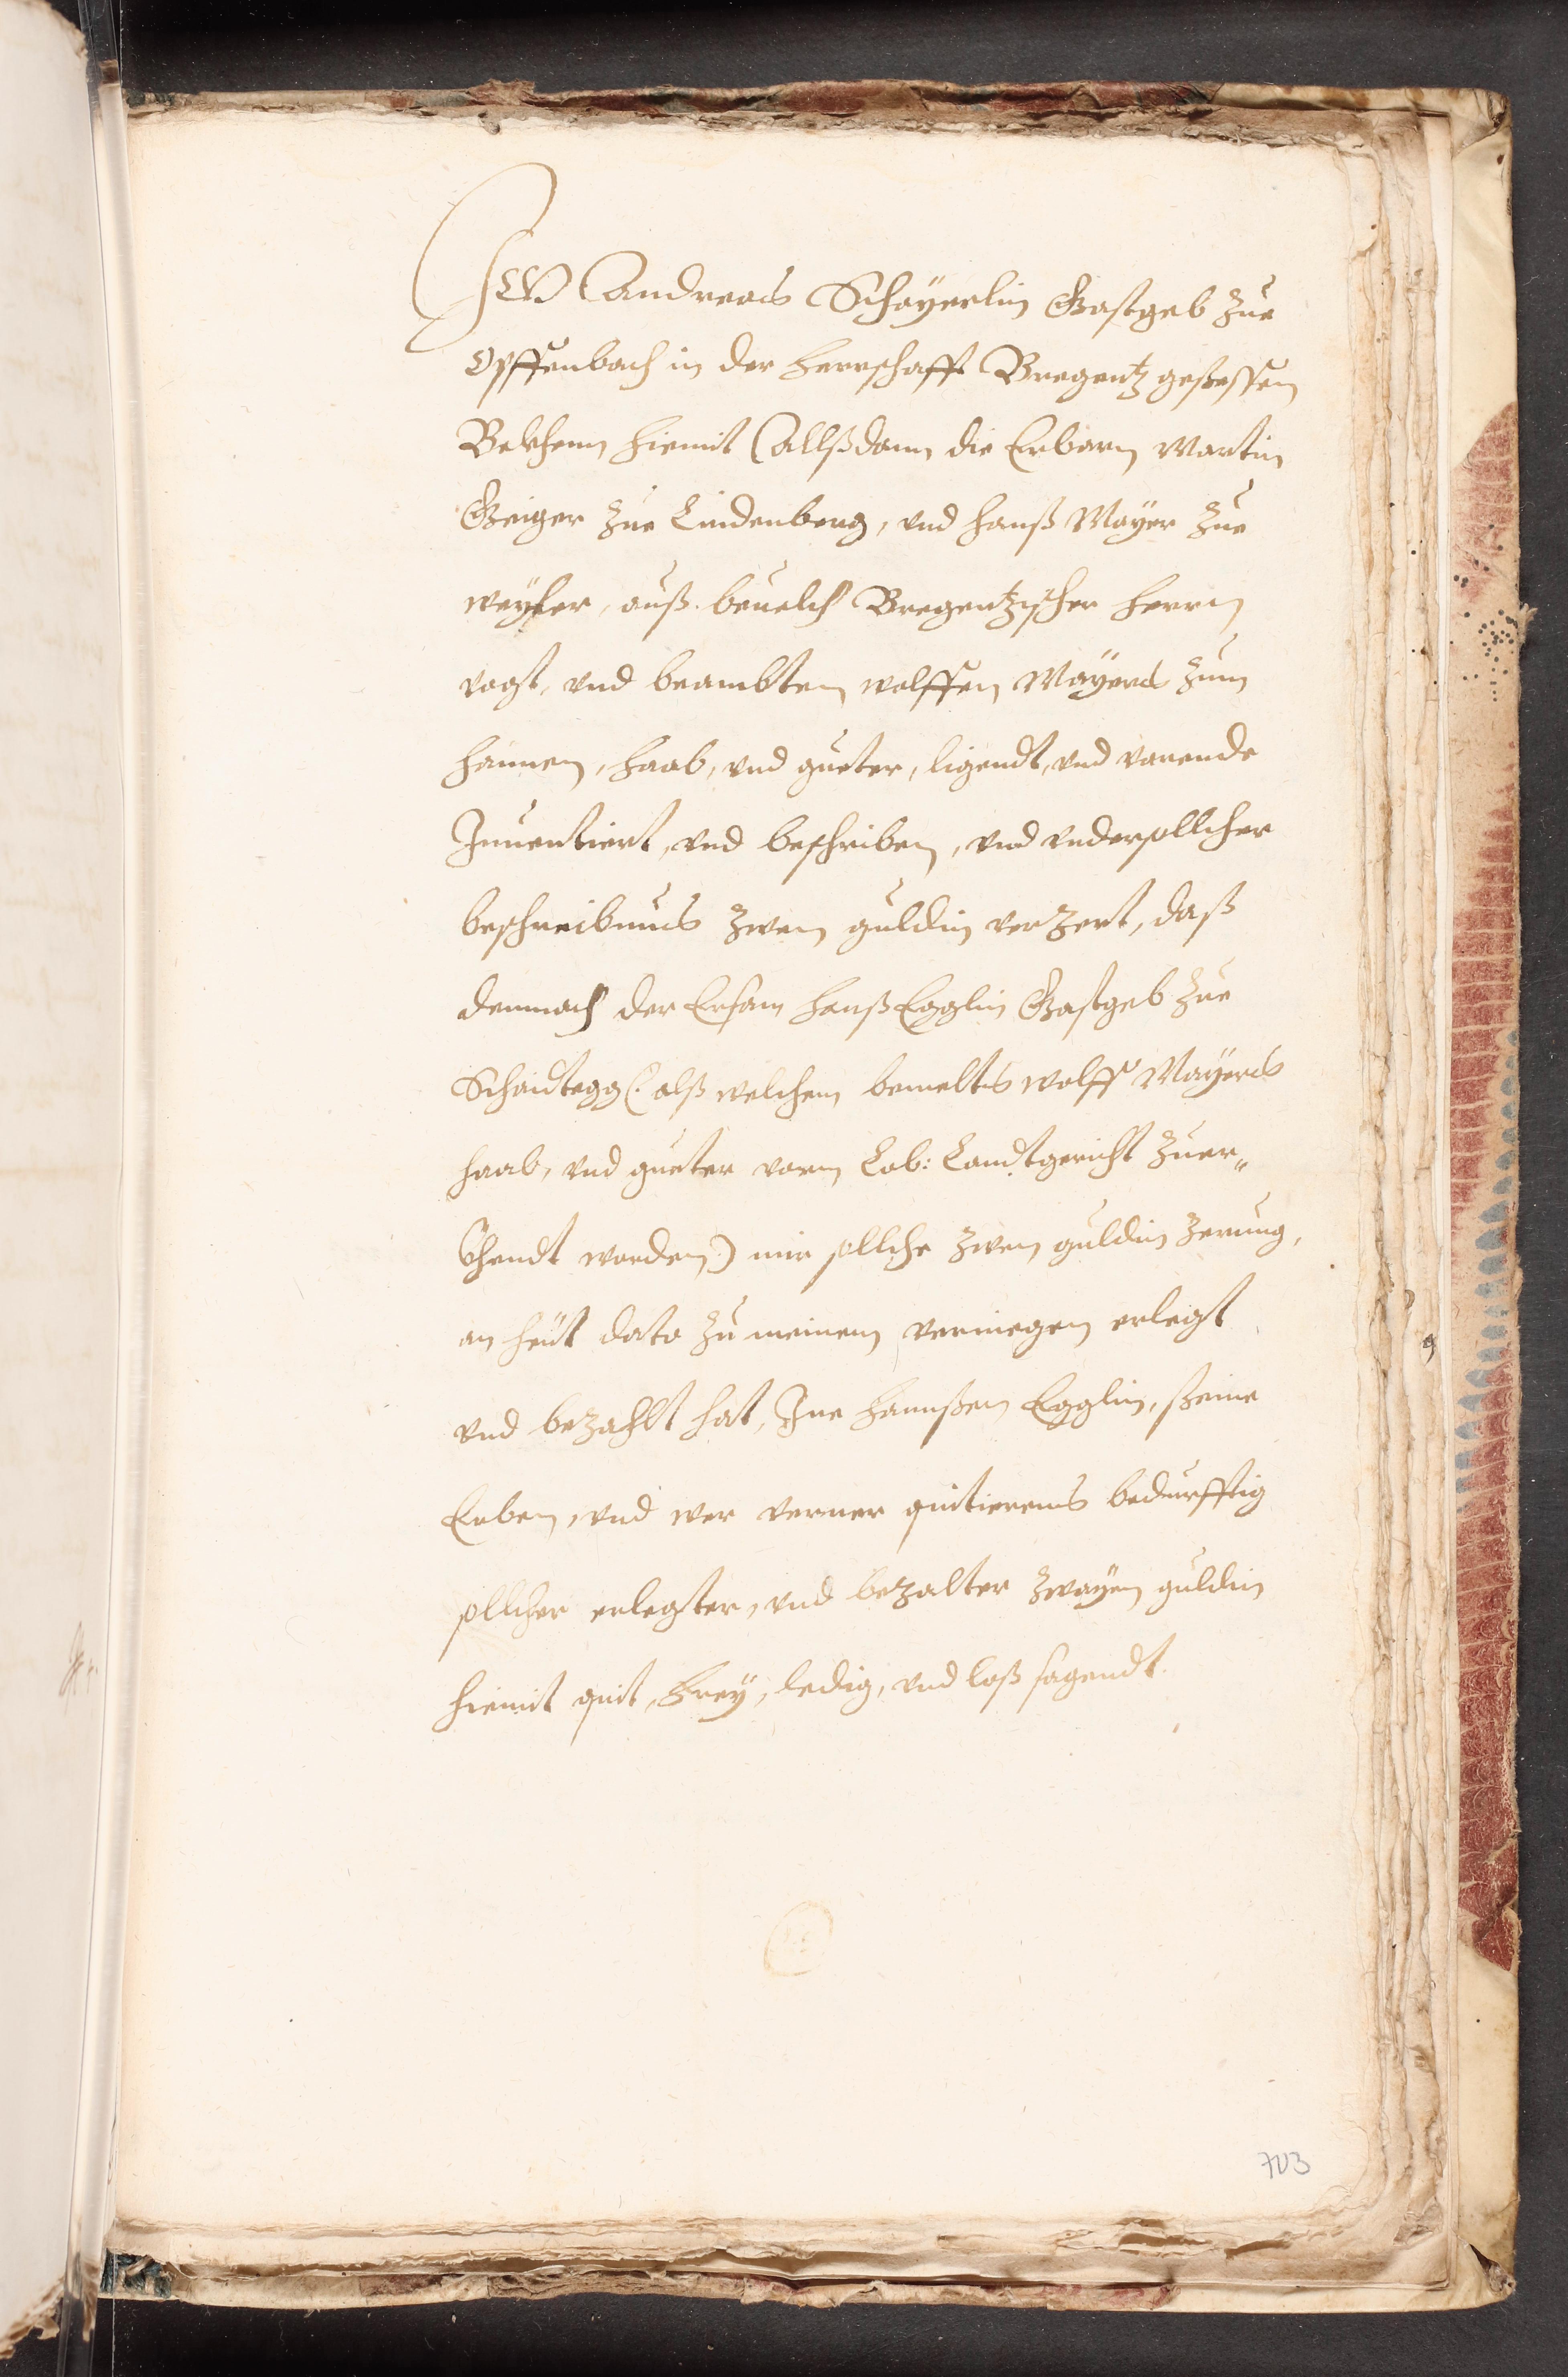 ICH Andreas Schayerlin Gastgeb zue
Opffenbach in der Herrschafft Bregentz gesessen
Bekhenn hiemit Allßdann die Erbarn Martin
Geiger zue Lindenberg, vnd hanß Mayer zue
weyler, auß beuelch Bregentzischer herrn
vogt, vnd beambten wolffen Mayers zum
hännen, haab, vnd güeter, ligendt, vnd varende
Inuentiert, vnd beschriben, vnd vndersollcher
beschreibnus zwen guldin verzert, daß
demnach der Ersam hanß Egglin Gastgeb zue
Schaidtegg (: alß welchem bemelts wolff Mayers
haab, vnd güeter vorm Lob: Landtgericht zuer„
khendt worden) mir sollche zwen guldin zerung,
an heüt dato zu meinem vermegen erlegt
vnd bezahlt hat, Ine hannßen Egglin, seine
Erben, vnd wer verner quitierens bedürfftig
sollcher erlegter, vnd bezalter zwayen guldin
hiemit quit, frey, ledig, vnd loß sagendt.
703